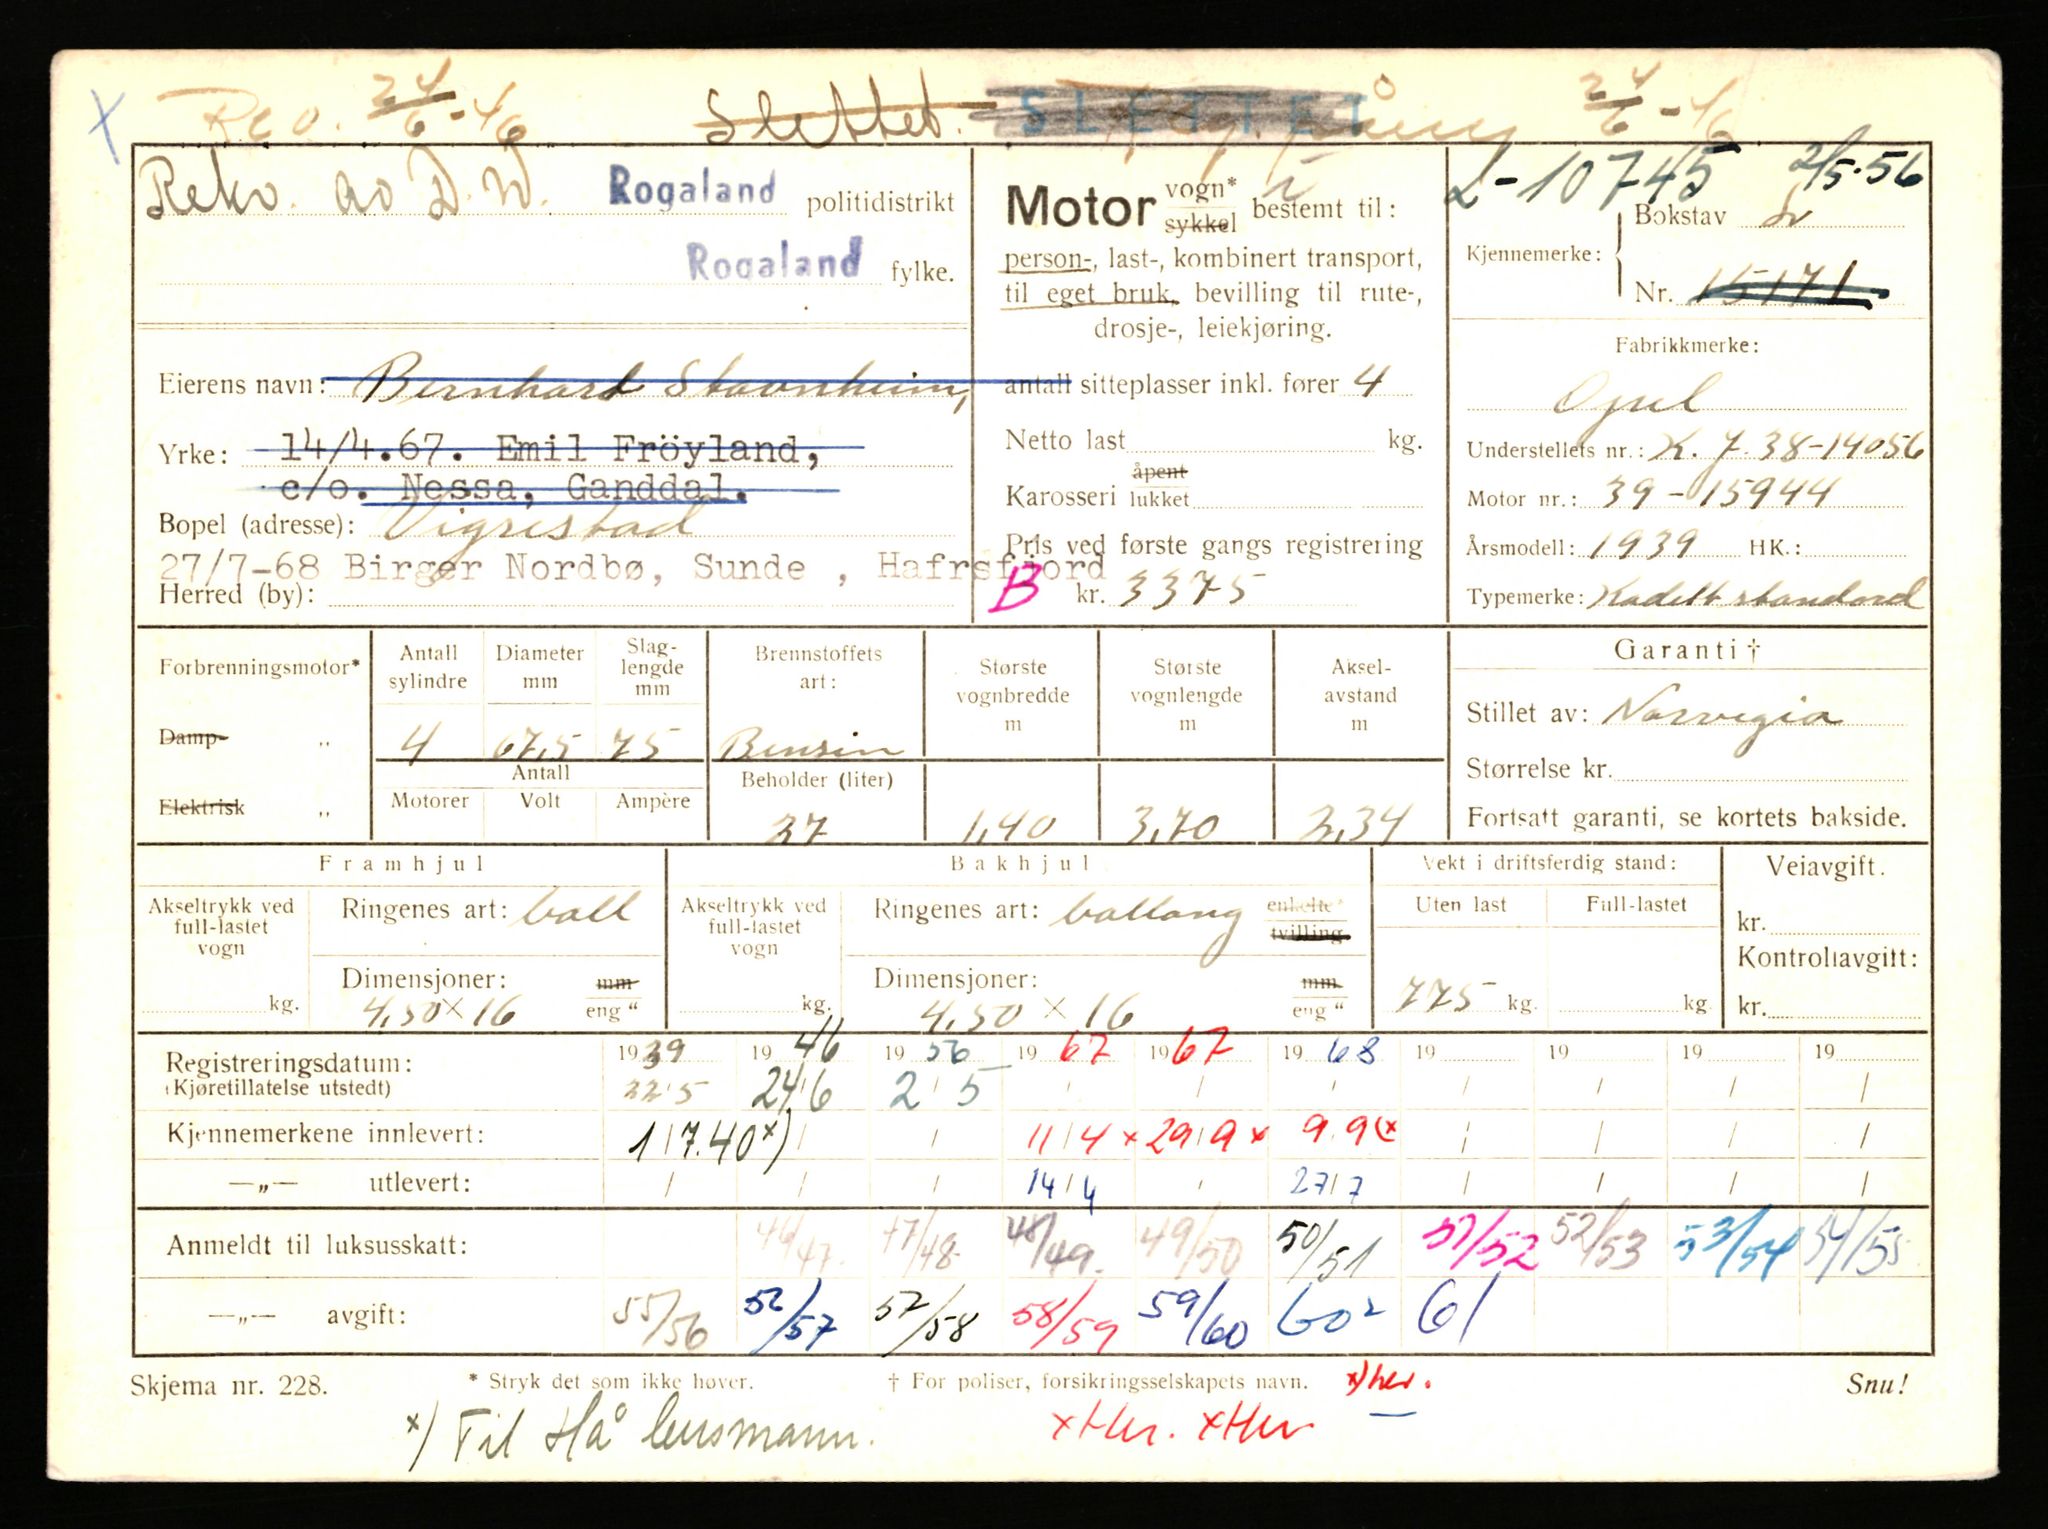 x Reg. 24/6-46 Slettet. SLETTET 24/6-46
Rekv. av D.W. Rogaland politidistrikt
Rogaland fylke.
Eierens navn: Bernhard Stavnheim,
Yrke: 14/4.67. Emil Fröyland,
c/o. Nessa, Ganddal.
Bopel (adresse): Vigrestad
27/7-68 Birger Nordbø, Sunde , Hafrsfjord
Herred (by):
Motor vogn* sykkel bestemt til:
person-, last-, kombinert transport,
til eget bruk, bevilling til rute-,
drosje-, leiekjøring.
antall sitteplasser inkl. fører 4
Netto last kg.
Karosseri åpent lukket
Pris ved første gangs registrering
B kr. 3375
L-10745 2/5.56
Kjennemerke: Bokstav L
Nr. 15171
Fabrikkmerke:
Opel
Understellets nr.: K.J. 38-14056
Motor nr.: 39-15944
Årsmodell: 1939 HK.:
Typemerke: Kadett standard
Forbrenningsmotor* Antall sylindre Diameter mm Slaglengde mm Brennstoffets art: Største vognbredde m Største vognlengde m Akselavstand m
Damp- „ 4 67,5 75 Bensin
Elektrisk „ Antall Motorer Volt Ampère Beholder (liter)
27 1,40 3,70 2,34
Garanti †
Stillet av: Norvegia
Størrelse kr.
Fortsatt garanti, se kortets bakside.
Framhjul Bakhjul Vekt i driftsferdig stand: Veiavgift.
Akseltrykk ved full-lastet vogn Ringenes art: ball Akseltrykk ved full-lastet vogn Ringenes art: ballong enkelte* tvilling Uten last Full-lastet kr.
Kontrollavgift:
kg. Dimensjoner: 4,50 x 16 mm eng “ kg. Dimensjoner: 4,50 x 16 mm eng “ 775 kg. kg. kr.
Registreringsdatum: 1939 1946 1956 1967 1967 1968 19 19 19 19
(Kjøretillatelse utstedt) 22/5 24/6 2/5 / / / / / / /
Kjennemerkene innlevert: 1/7.40 x) / / 11/4 x 29/9 x 9/9 (x / / / /
—„— utlevert: / / / 14/4 / 27/7 / / / /
Anmeldt til luksusskatt: 46/47. 47/48- 48/49. 49/50 50/51 51/52 52/53 53/54 54/55
—„— avgift: 55/56 56/57 57/58 58/59 59/60 60² 61
Skjema nr. 228. * Stryk det som ikke høver. † For poliser, forsikringsselskapets navn. x) her. Snu!
x) Til Hå lensmann. x Her. x Her